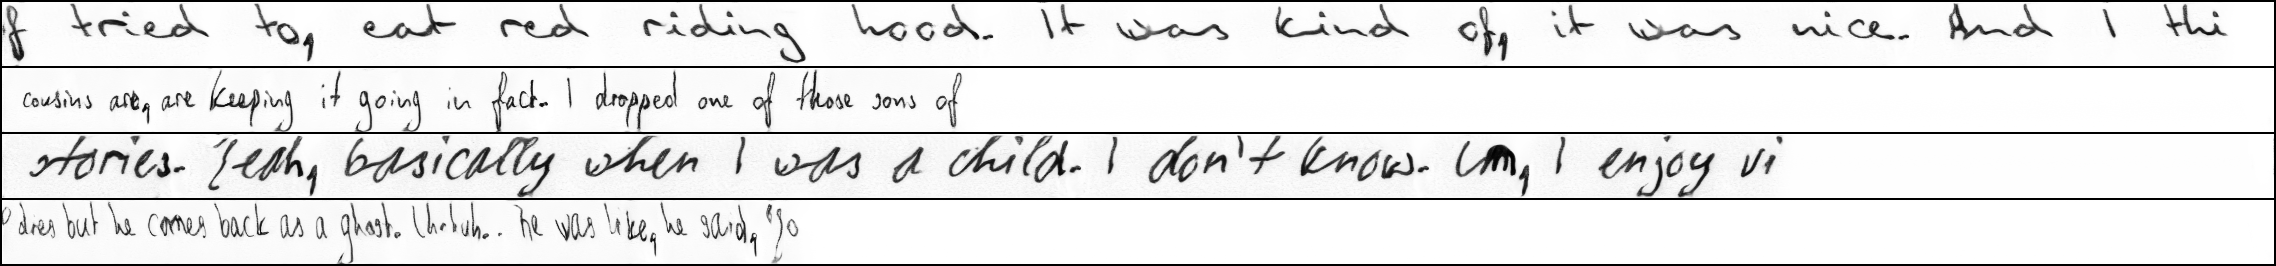 f tried to, eat red riding hood. It was kind of, it was nice. And I thi
cousins are, are keeping it going in fact. I dropped one of those sons of
stories. Yeah, basically when I was a child. I don't know. Um, I enjoy vi
dies but he comes back as a ghost. Uh-huh.. He was like, he said, "Yo